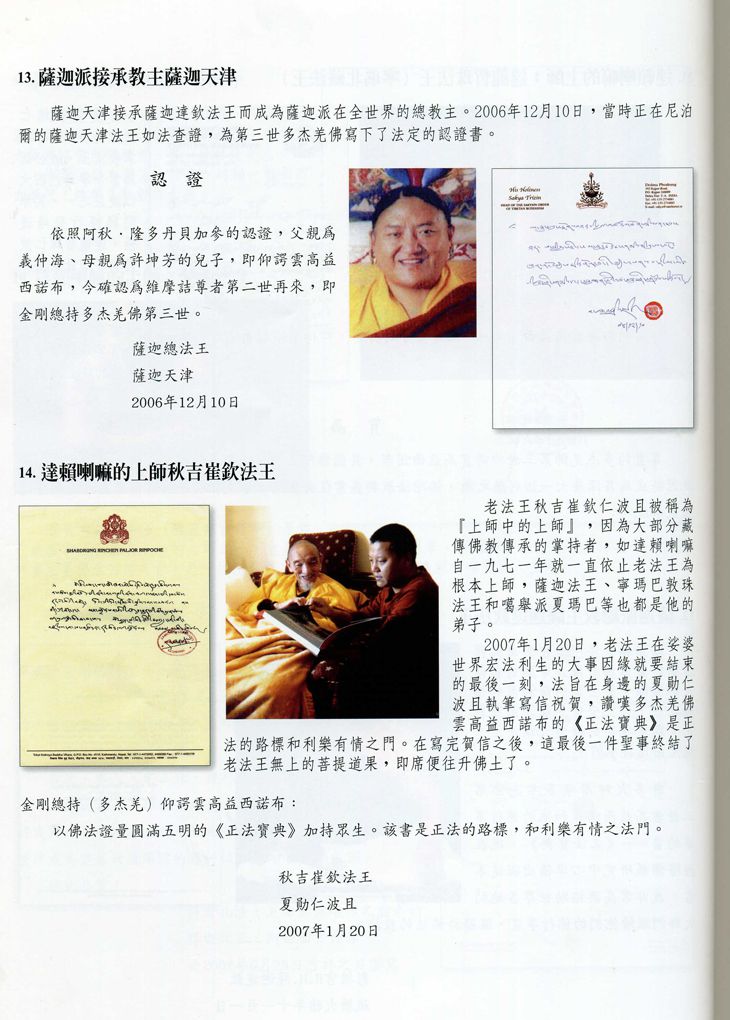 13. 薩迦派接承教主薩迦天津
薩迦天津接承薩迦達欽法王而成為薩迦派在全世界的總教主。2006年12月10日，當時正在尼泊
爾的薩迦天津法王如法查證，為第三世多杰羌佛寫下了法定的認證書。
認 證
依照阿秋·隆多丹貝加參的認證，父親為
義仲海、母親為許坤芳的兒子，即仰諤雲高益
西諾布，今確認為維摩詰尊者第二世再來，即
金剛總持多杰羌佛第三世。
薩迦總法王
薩迦天津
2006年12月10日
His Holiness
Sakya Trizin
HEAD OF THE SAKYAPA ORDER
OF TIBETAN BUDDHISM
Dolma Phodrang
14. 達賴喇嘛的上師秋吉崔欽法王
SHABDRUNG RINCHEN PALJOR RIMPOCHE
老法王秋吉崔欽仁波且被稱為
『上師中的上師』，因為大部分藏
傳佛教傳承的掌持者，如達賴喇嘛
自一九七一年就一直依止老法王為
根本上師，薩迦法王、寧瑪巴敦珠
法王和噶舉派夏瑪巴等也都是他的
弟子。
2007年1月20日，老法王在娑婆
世界宏法利生的大事因緣就要結束
的最後一刻，法旨在身邊的夏勛仁
波且執筆寫信祝賀，讚嘆多杰羌佛
雲高益西諾布的《正法寶典》是正
法的路標和利樂有情之門。在寫完賀信之後，這最後一件聖事終結了
老法王無上的菩提道果，即席便往升佛土了。
金剛總持（多杰羌）仰諤雲高益西諾布：
以佛法證量圓滿五明的《正法寶典》加持眾生。該書是正法的路標，和利樂有情之法門。
秋吉崔欽法王
夏勛仁波且
2007年1月20日